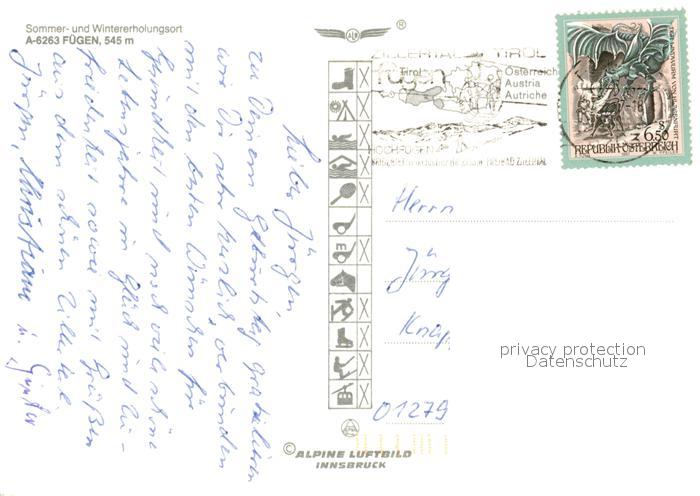 Sommer- und Wintererholungsort
A-6263 FÜGEN, 545 m
Lieber Jürgen,
zu Deinem Geburtstag gratulieren
wir Dir sehr herzlich, verbunden
mit den besten Wünschen für
Gesundheit und noch viele schöne
Lebensjahre in Glück und Zu-
friedenheit sowie mit Grüßen
aus dem schönen Zillertal
Jürgen, Christiane u. Günter
ALM
®
ZILLERTAL TIROL
Fügen
Tirol
Österreich
Austria
Autriche
HOCHFÜGEN
6.50
REPUBLIK ÖSTERREICH
Herrn
Jürg
Knap
01279
privacy protection
Datenschutz
© ALPINE LUFTBILD
INNSBRUCK